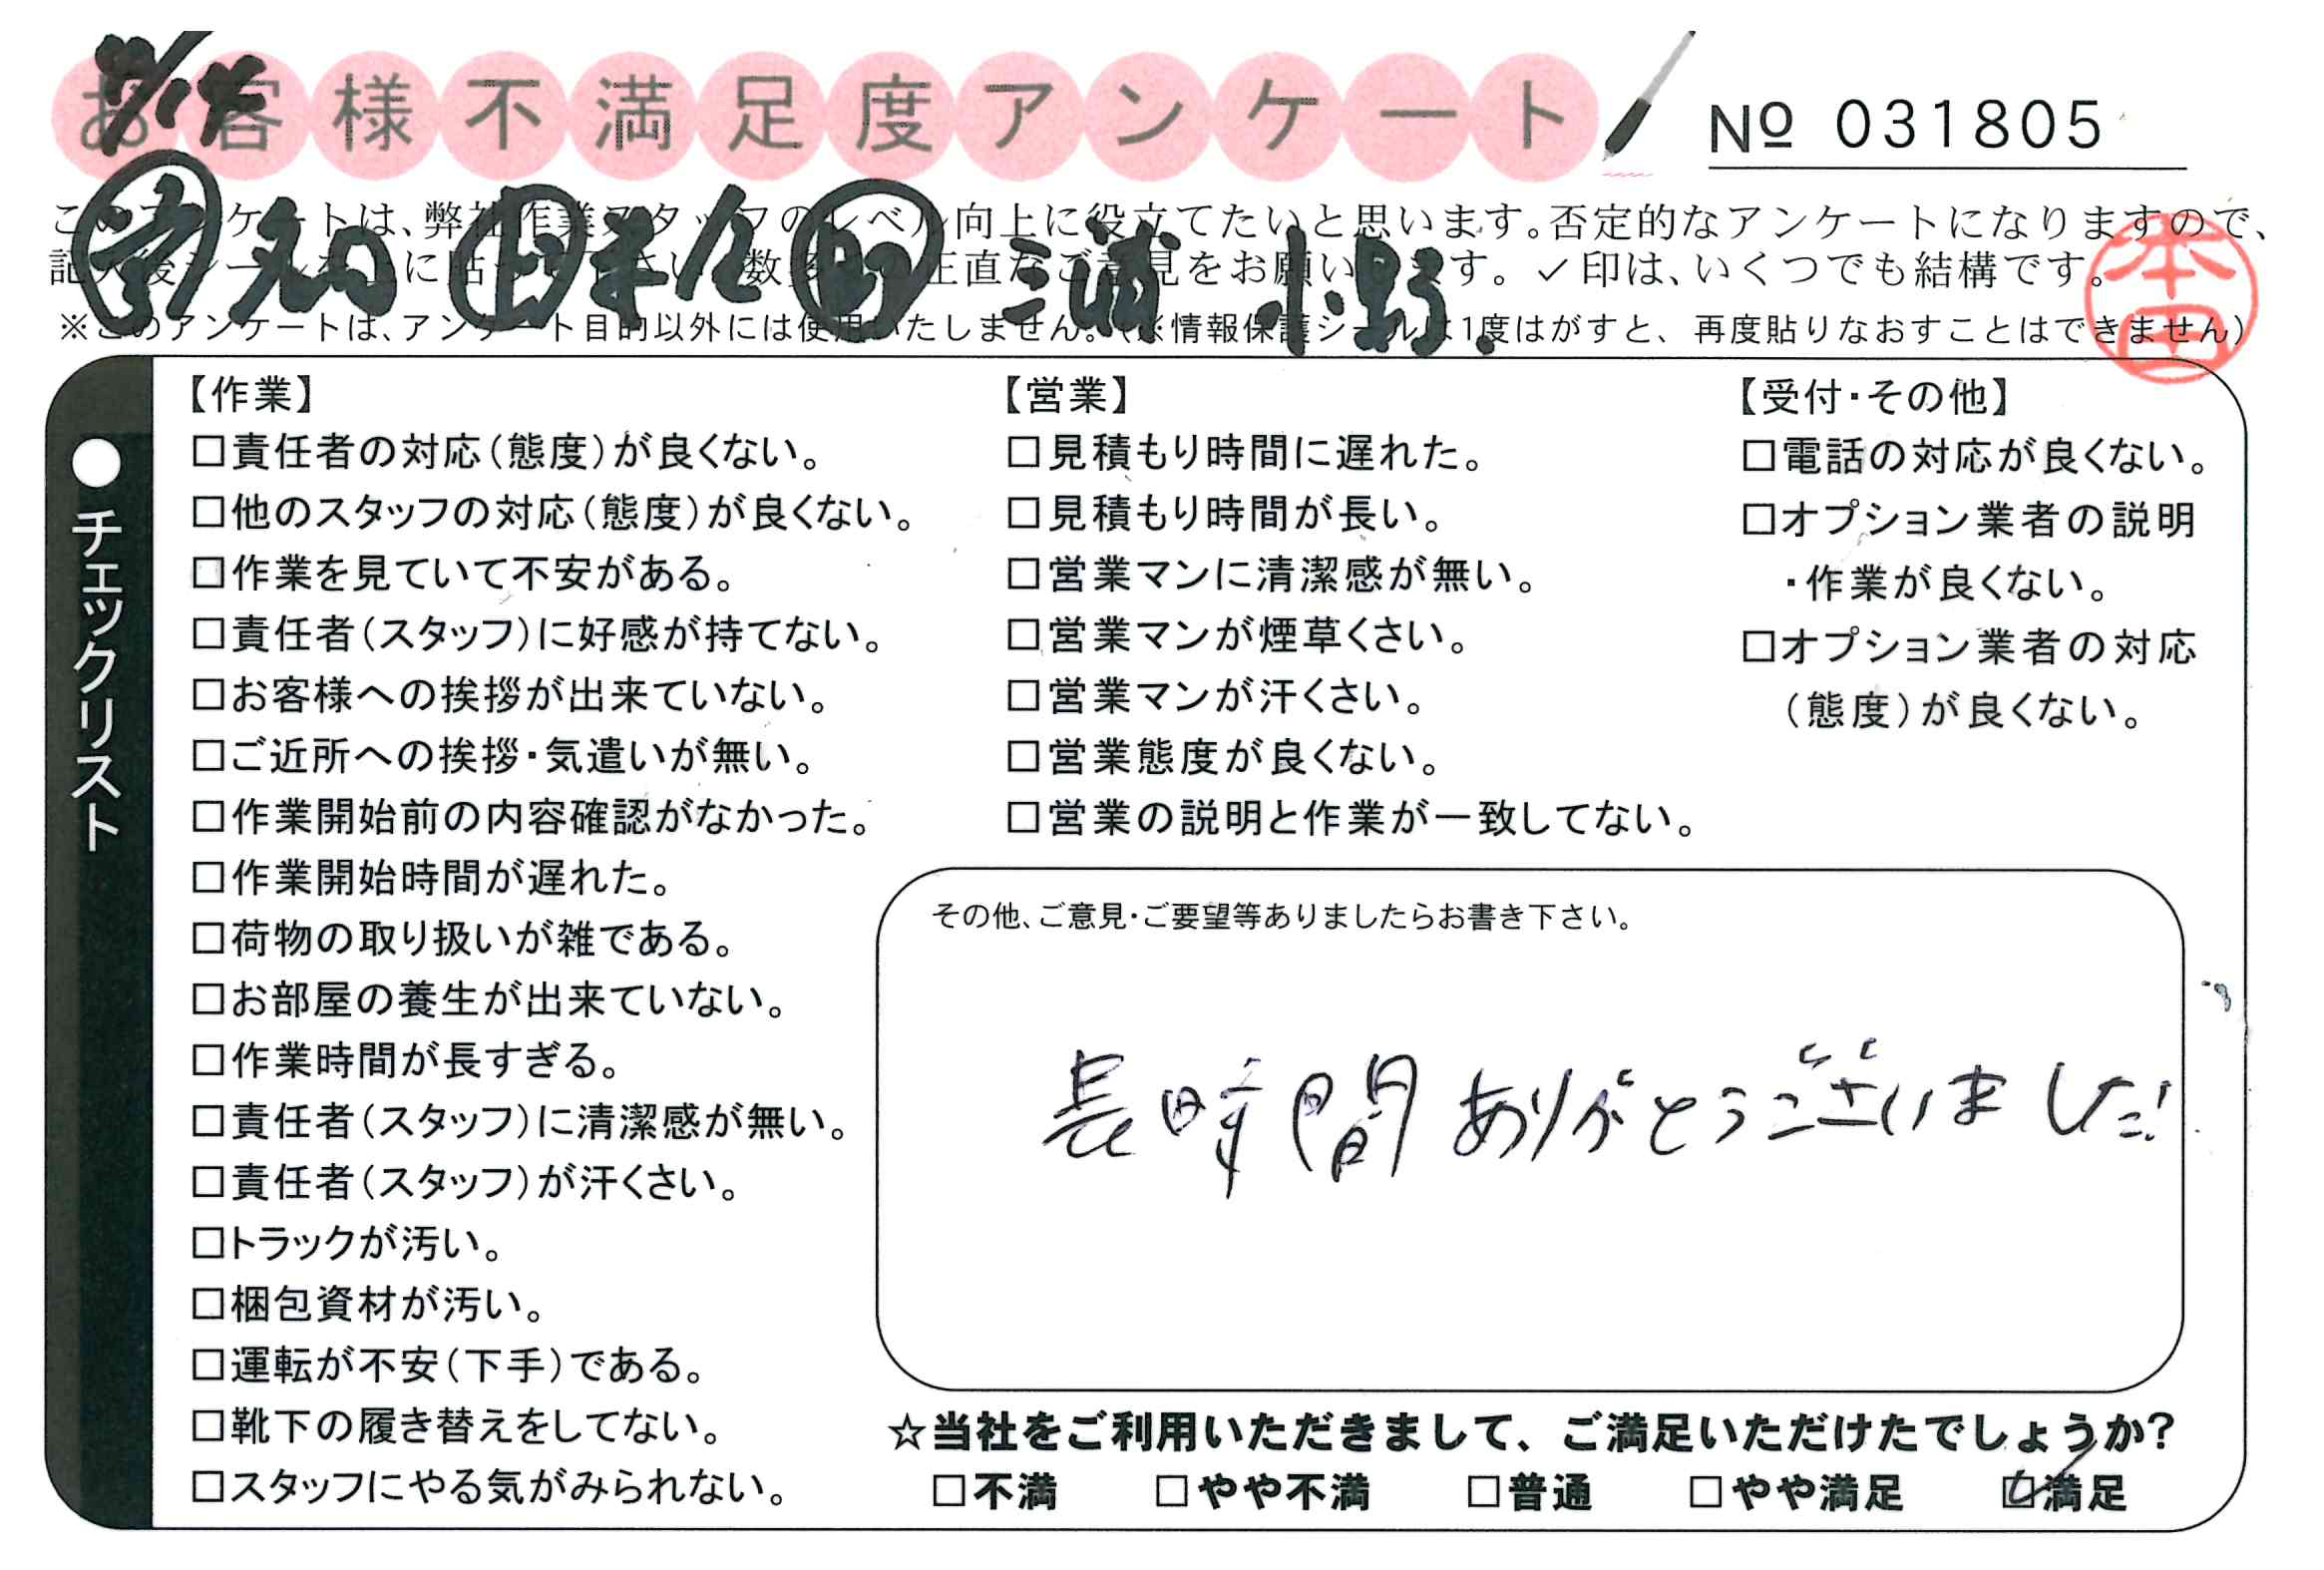 お客様不満足度アンケート
No 031805
このアンケートは、弊社作業スタッフのレベル向上に役立てたいと思います。否定的なアンケートになりますので、
記入後シールを上に貼ってください。数多くの正直なご意見をお願いします。✓印は、いくつでも結構です。
※このアンケートは、アンケート目的以外には使用いたしません。(※情報保護シールは1度はがすと、再度貼りなおすことはできません)
三浦 小野.
本田
●チェックリスト
【作業】
□責任者の対応(態度)が良くない。
□他のスタッフの対応(態度)が良くない。
□作業を見ていて不安がある。
□責任者(スタッフ)に好感が持てない。
□お客様への挨拶が出来ていない。
□ご近所への挨拶・気遣いが無い。
□作業開始前の内容確認がなかった。
□作業開始時間が遅れた。
□荷物の取り扱いが雑である。
□お部屋の養生が出来ていない。
□作業時間が長すぎる。
□責任者(スタッフ)に清潔感が無い。
□責任者(スタッフ)が汗くさい。
□トラックが汚い。
□梱包資材が汚い。
□運転が不安(下手)である。
□靴下の履き替えをしてない。
□スタッフにやる気がみられない。
【営業】
□見積もり時間に遅れた。
□見積もり時間が長い。
□営業マンに清潔感が無い。
□営業マンが煙草くさい。
□営業マンが汗くさい。
□営業態度が良くない。
□営業の説明と作業が一致してない。
【受付・その他】
□電話の対応が良くない。
□オプション業者の説明
・作業が良くない。
□オプション業者の対応
(態度)が良くない。
その他、ご意見・ご要望等ありましたらお書き下さい。
長時間ありがとうございました!
☆当社をご利用いただきまして、ご満足いただけたでしょうか?
□不満 □やや不満 □普通 □やや満足 ☑満足